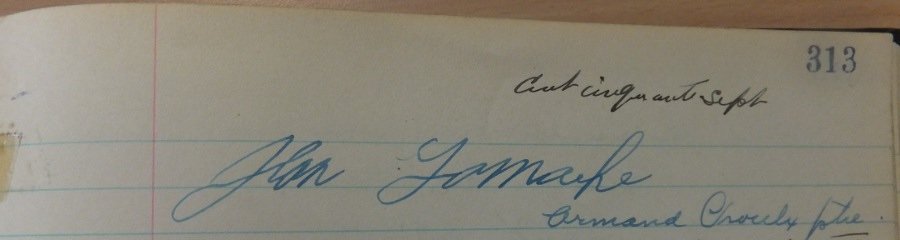 313
cent cinquante sept
Jean Lamarche
Armand Proulx ptre.